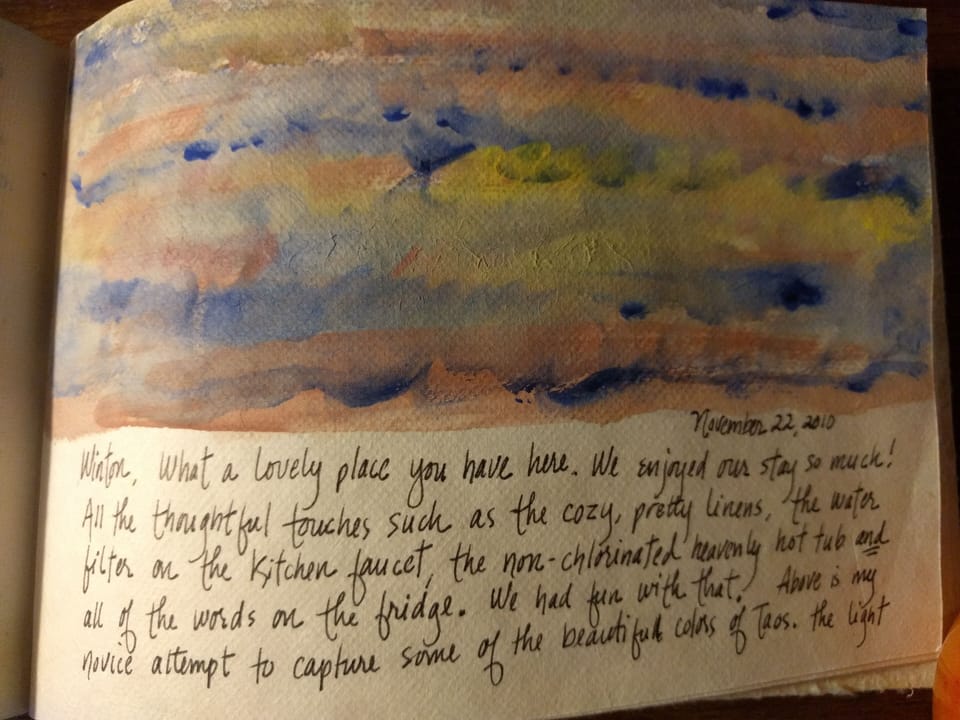 November 22, 2010
Winton, What a lovely place you have here. We enjoyed our stay so much!
All the thoughtful touches such as the cozy, pretty linens, the water
filter on the kitchen faucet, the non-chlorinated heavenly hot tub and
all of the words on the fridge. We had fun with that. Above is my
novice attempt to capture some of the beautiful colors of Taos. The light